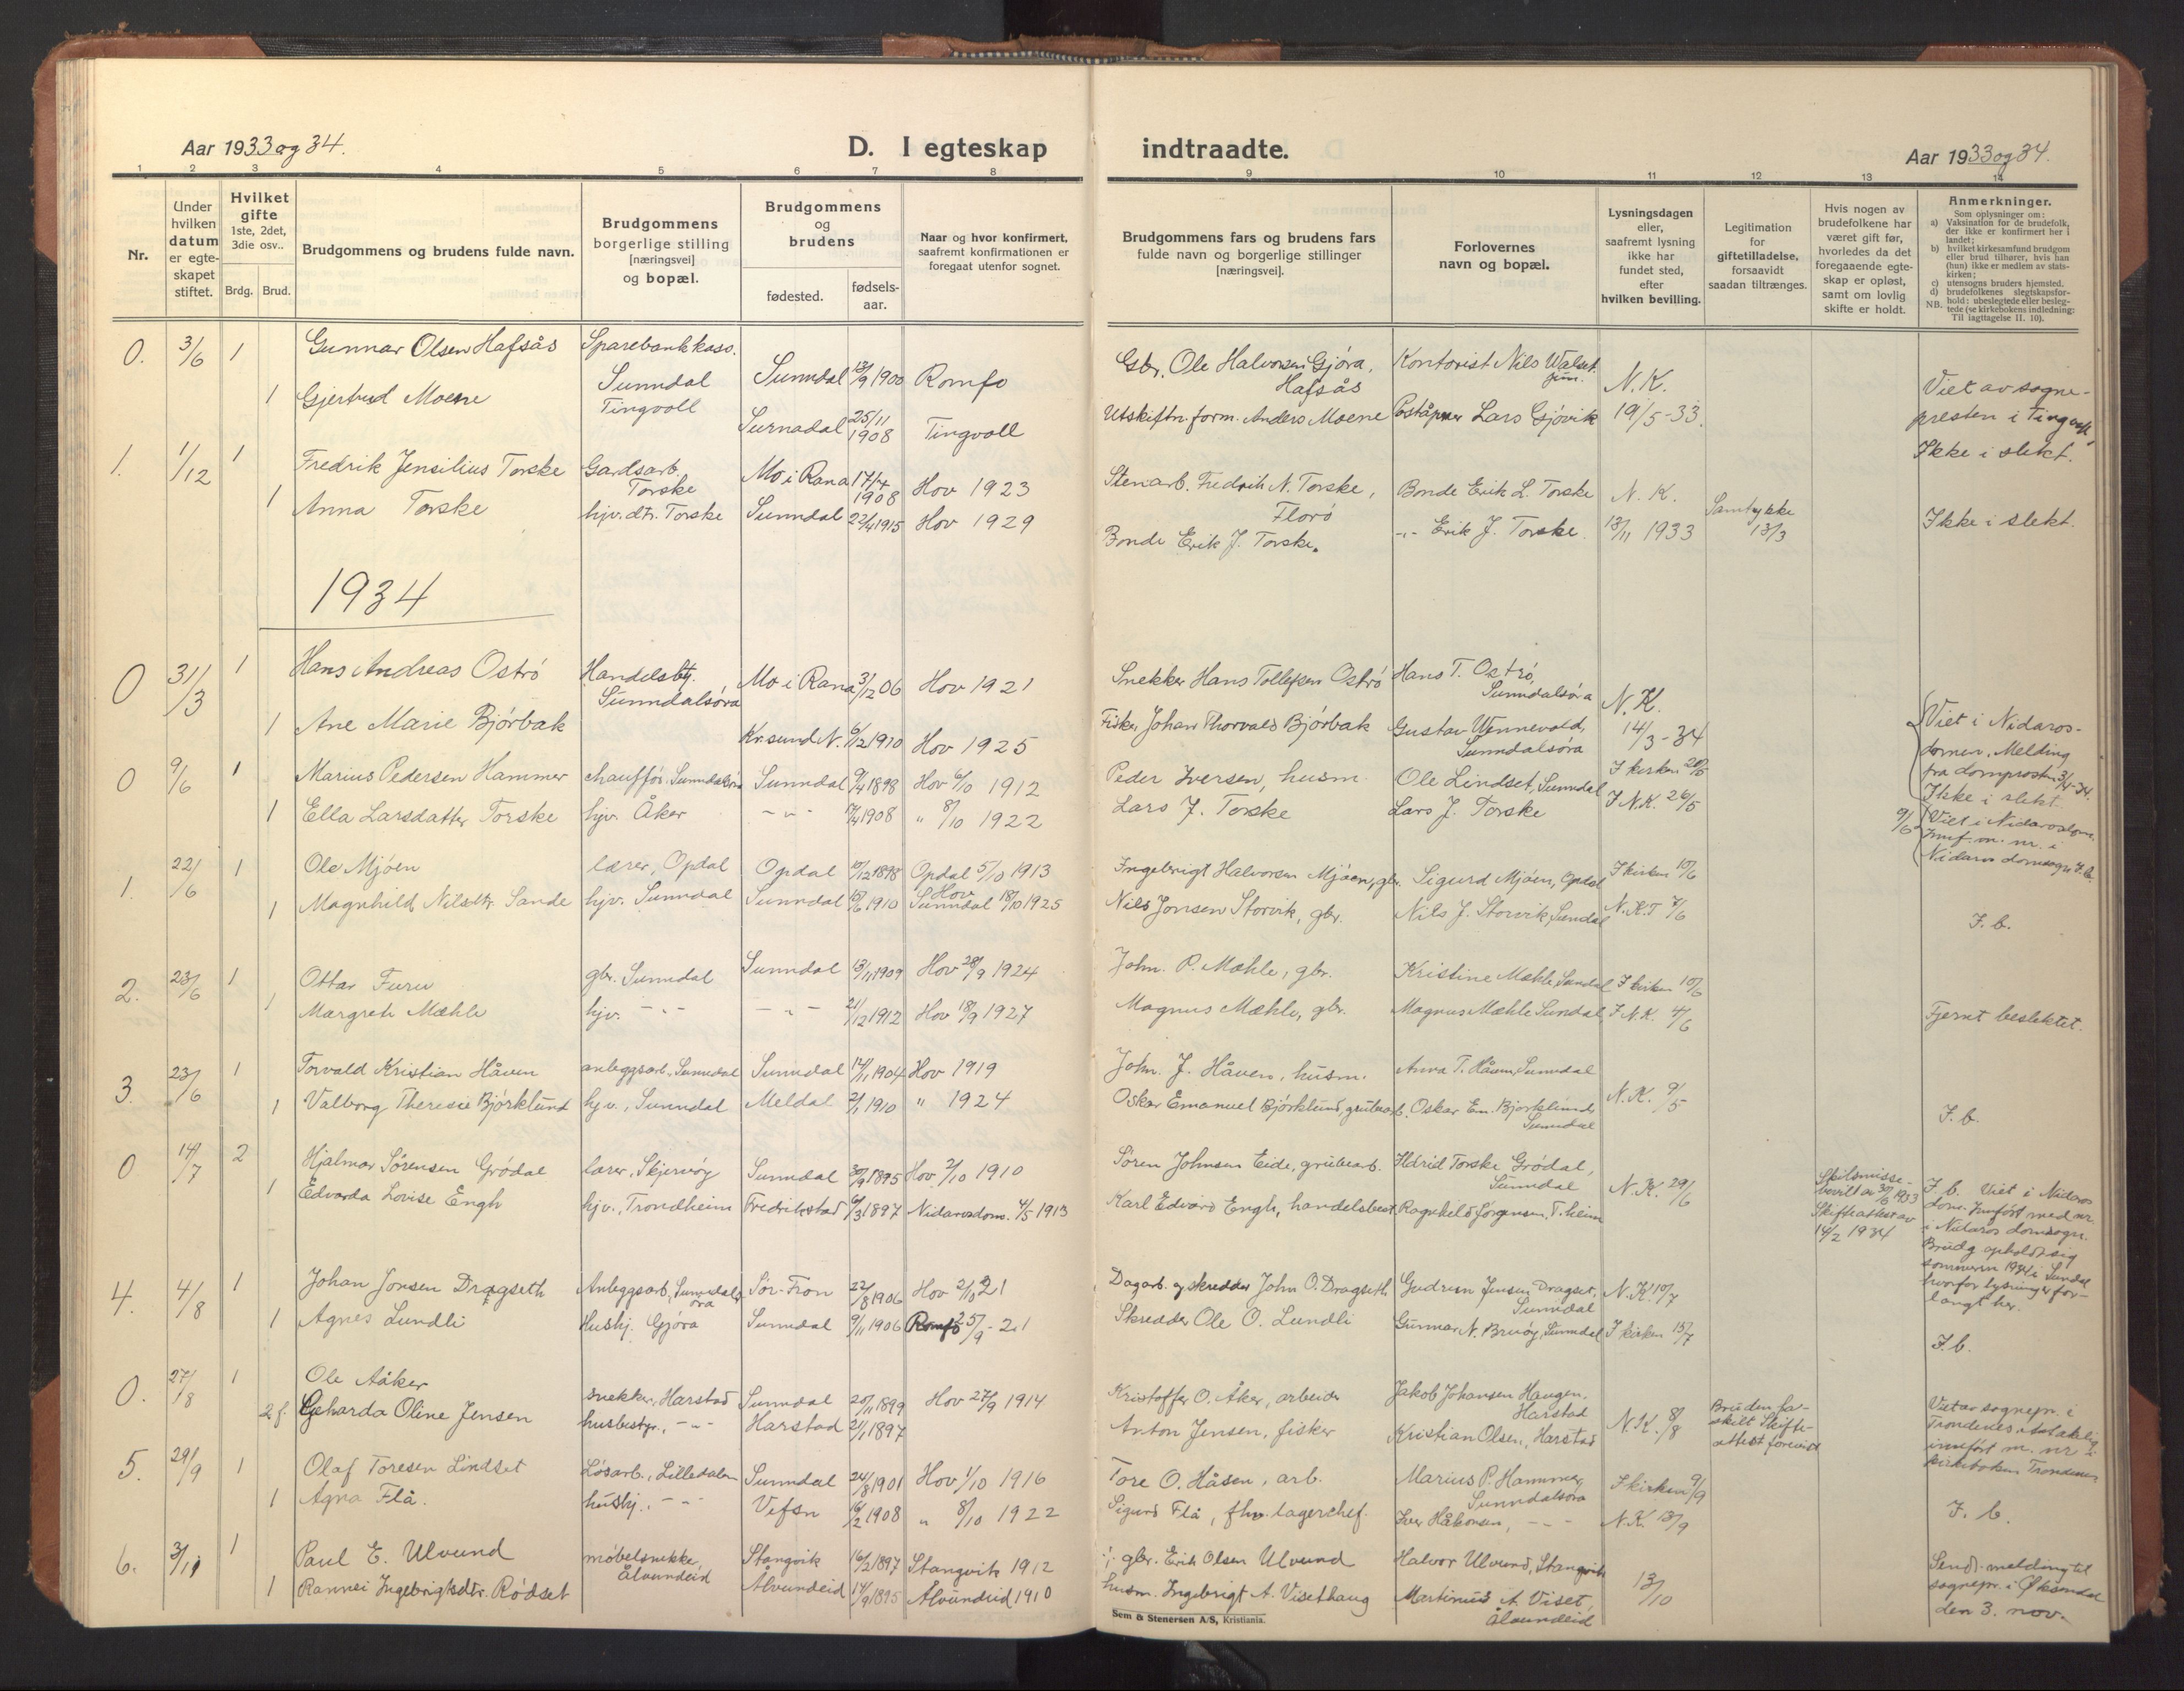 Aar 1933 og 34.
D. I egteskap
indtraadte.
Aar 1933 og 34.
1. 2 3 4 5 6 7 8 9 10 11 12 13 14
Nr.
Under hvilken datum er egte-skapet stiftet.
Hvilket gifte 1ste, 2det, 3die osv..
Brdg. Brud.
Brudgommens og brudens fulde navn.
Brudgommens borgerlige stilling [næringsvei] og bopæl.
Brudgommens og brudens
fødested.
fødsels-aar.
Naar og hvor konfirmert, saafremt konfirmationen er foregaat utenfor sognet.
Brudgommens fars og brudens fars fulde navn og borgerlige stillinger [næringsvei].
Forlovernes navn og bopæl.
Lysningsdagen eller, saafremt lysning ikke har fundet sted, efter hvilken bevilling.
Legitimation for giftetilladelse, forsaavidt saadan tiltrænges.
Hvis nogen av brudefolkene har været gift før, hvorledes da det foregaaende egte-skap er opløst, samt om lovlig skifte er holdt.
Anmerkninger.
Som oplysninger om:
a) Vaksination for de brudefolk, der ikke er konfirmert her i landet;
b) hvilket kirkesamfund brudgom eller brud tilhører, hvis han (hun) ikke er medlem av stats-kirken;
c) utensogns bruders hjemsted.
d) brudefolkenes slegtskapsfor-hold: ubeslegtede eller besleg-tede (se kirkebokens indledning: Til iagttagelse II. 10).
NB.
0. 3/6 1 Gunnar Olsen Hafsås Sparebankkass. Sunndal Sunndal 13/9 1900 Romfo Gbr. Ole Halvorsen Gjøra, Hafsås Kontorist Nils Walset jun. N.K.
1 Gjertrud Moene Tingvoll Surnadal 25/11 1908 Tingvoll Utskiftn.form. Anders Moene Poståpner Lars Gjøvik 19/5-33. Viet av sogne-presten i Tingvoll, Ikke i slekt.
1. 1/12 1 Fredrik Jensilius Torske Gardsarb. Torske Mo i Rana 17/4 1908 Hov 1923 Stenarb. Fredrik N. Torske, Florø Bonde Erik L. Torske N.K. Samtykke
1 Anna Torske hjv. dtr. Torske Sunndal 22/4 1915 Hov 1929 Bonde Erik J. Torske. -"- Erik J. Torske. 13/11 1933 13/3 Ikke i slekt.
1934
0 31/3 1 Hans Andreas Ostrø Handelsbtj. Sunndalsøra Mo i Rana 3/12 06 Hov 1921 Snekker Hans Tollefsen Ostrø Hans T. Ostrø, Sunndalsøra N.K.
1 Ane Marie Bjørbak Kr.sund N. 6/12 1910 Hov 1925 Fisker Johan Thorvald Bjørbak Gustav Wennevold, Sunndalsøra 14/3-34 Viet i Nidaros-domen. Melding fra domprosten 3/4-34. Ikke i slekt.
0 9/6 1 Marius Pedersen Hammer chauffør, Sunndalsøra Sunndal 9/4 1898 Hov 6/10 1912 Peder Iversen, husm. Ole Lindset, Sunndal I kirken 20/5
1 Ella Larsdatter Torske hjv. Åker -"- 1908 " 8/10 1922 Lars J. Torske Lars J. Torske I N.K. 26/5 9/6 Viet i Nidarosdom. Innf. m. nr. i Nidaros domsogn k.b.
1. 22/6 1 Ole Mjøen lærer, Opdal Opdal 10/12 1898 Opdal 5/10 1913 Ingebrigt Halvorsen Mjøen, gbr. Sigurd Mjøen, Opdal I kirken 10/6
1 Magnhild Nilsdtr. Sande hjv. Sunndal Sunndal 1910 Hov Sunndal 18/10 1925 Nils Jonsen Storvik, gbr. Nils J. Storvik, Sundal N.K.T 7/6 I.b.
2. 23/6 1 Ottar Furu gbr. Sunndal Sunndal 13/11 1909 Hov 28/9 1924 John. P. Mæhle, gbr. Kristine Mæhle, Sundal I kirken 10/6
1 Margreth Mæhle hjv. -"- -"- 21/12 1912 Hov 18/9 1927 Magnus Mæhle, gbr. Magnus Mæhle Sundal, I N.K. 4/6 Fjernt beslektet.
3. 23/6 1 Torvald Kristian Håven anleggsarb. Sunndal Sunndal 14/1 1904 Hov 1919 John. J. Håven, husm. Anna T. Håven, Sunndal
1 Valborg Theresie Bjørklund hjv., Sunndal Meldal 2/1 1910 " 1924 Oskar Emanuel Bjørklund, grubearb. Oskar Em. Bjørklund, Sunndal N.K. 9/5 I.b.
0 14/7 2 Hjalmar Sørensen Grødal lærer, Skjervøy Sunndal 30/9 1895 Hov 2/10 1910 Søren Johnsen Eide, grubearb. Ildrid Torske Grødal, Sunndal
1 Edvarda Lovise Engh hjv., Trondheim Fredrikstad 6/3 1897 Nidarosdom. 4/5 1913 Karl Edvard Engh, handelsbest. Ragnhild Jørgensen, T.heim N.K. 29/6 Skilsmisse-bevill. av 30/6 1933 Skifteattest av 14/2 1934 I.b. Viet i Nidaros dom. Innført med nr. i Nidaros domsogn. Brudg. opholdt sig sommeren 1934 i Sundal hvorfor lysning er for-langt her.
4. 4/8 1 Johan Jonsen Dragseth Anleggsarb, Sunndalsøra Sør-Fron 22/8 1906 Hov 2/10 21 Dagarb. og skredder John O. Dragseth Gudrun Jensen Dragset, Sunndal N.K. 10/7
1 Agnes Lundli Hushj. Gjøra Sunndal 9/11 1906 Romfo 25/9-21 Skredder Ole O. Lundli Gunnar N. Bruøy, Sunndal I kirken 15/7 I.b.
0. 27/8 1 Ole Aaker snekker, Harstad Sunndal 20/11 1899 Hov 27/9 1914 Kristoffer O. Åker, arbeider Jakob Johansen Haugen, Harstad
2 f. Gerharda Oline Jensen husbestyr., -"- Harstad 21/1 1897 Anton Jensen, fisker Kristian Olsen, Harstad N.K. 8/8 Bruden fra-skilt Skifte-attest forevist Viet av sognepr. i Trondenes innført m. nr i kirkeboken Trondenes
5. 29/9 1 Olaf Toresen Lindset Løsarb., Lilledalen Sunndal 24/8 1901 Hov 1/10 1916 Tore O. Håsen, arb. Marius P. Hammer, Sunndalsøra I kirken 9/9
1 Agna Flå. hushj., -"- Vefsn 16/2 1908 " 8/10 1922 Sigurd Flå, fhv. lagerchef. Iver Håkonsen, -"- N.K. 13/9 I.b.
6. 3/11 1 Paul E. Ulvund møbelsnikke, Ålvundeid Stangvik 16/2 1897 Stangvik 1912 gbr. Erik Olsen Ulvund Halvor Ulvund, Stangvik
1 Rannei Ingebrigtsdtr. Rødset Ålvundeid 14/9 1895 Ålvundeid 1910 husm. Ingebrigt A. Visethaug Martinus A. Viset, Ålvundeid 13/10 Send. melding til sognepr. i Øksendal den 3. nov.
Sem & Stenersen A/S, Kristiania.